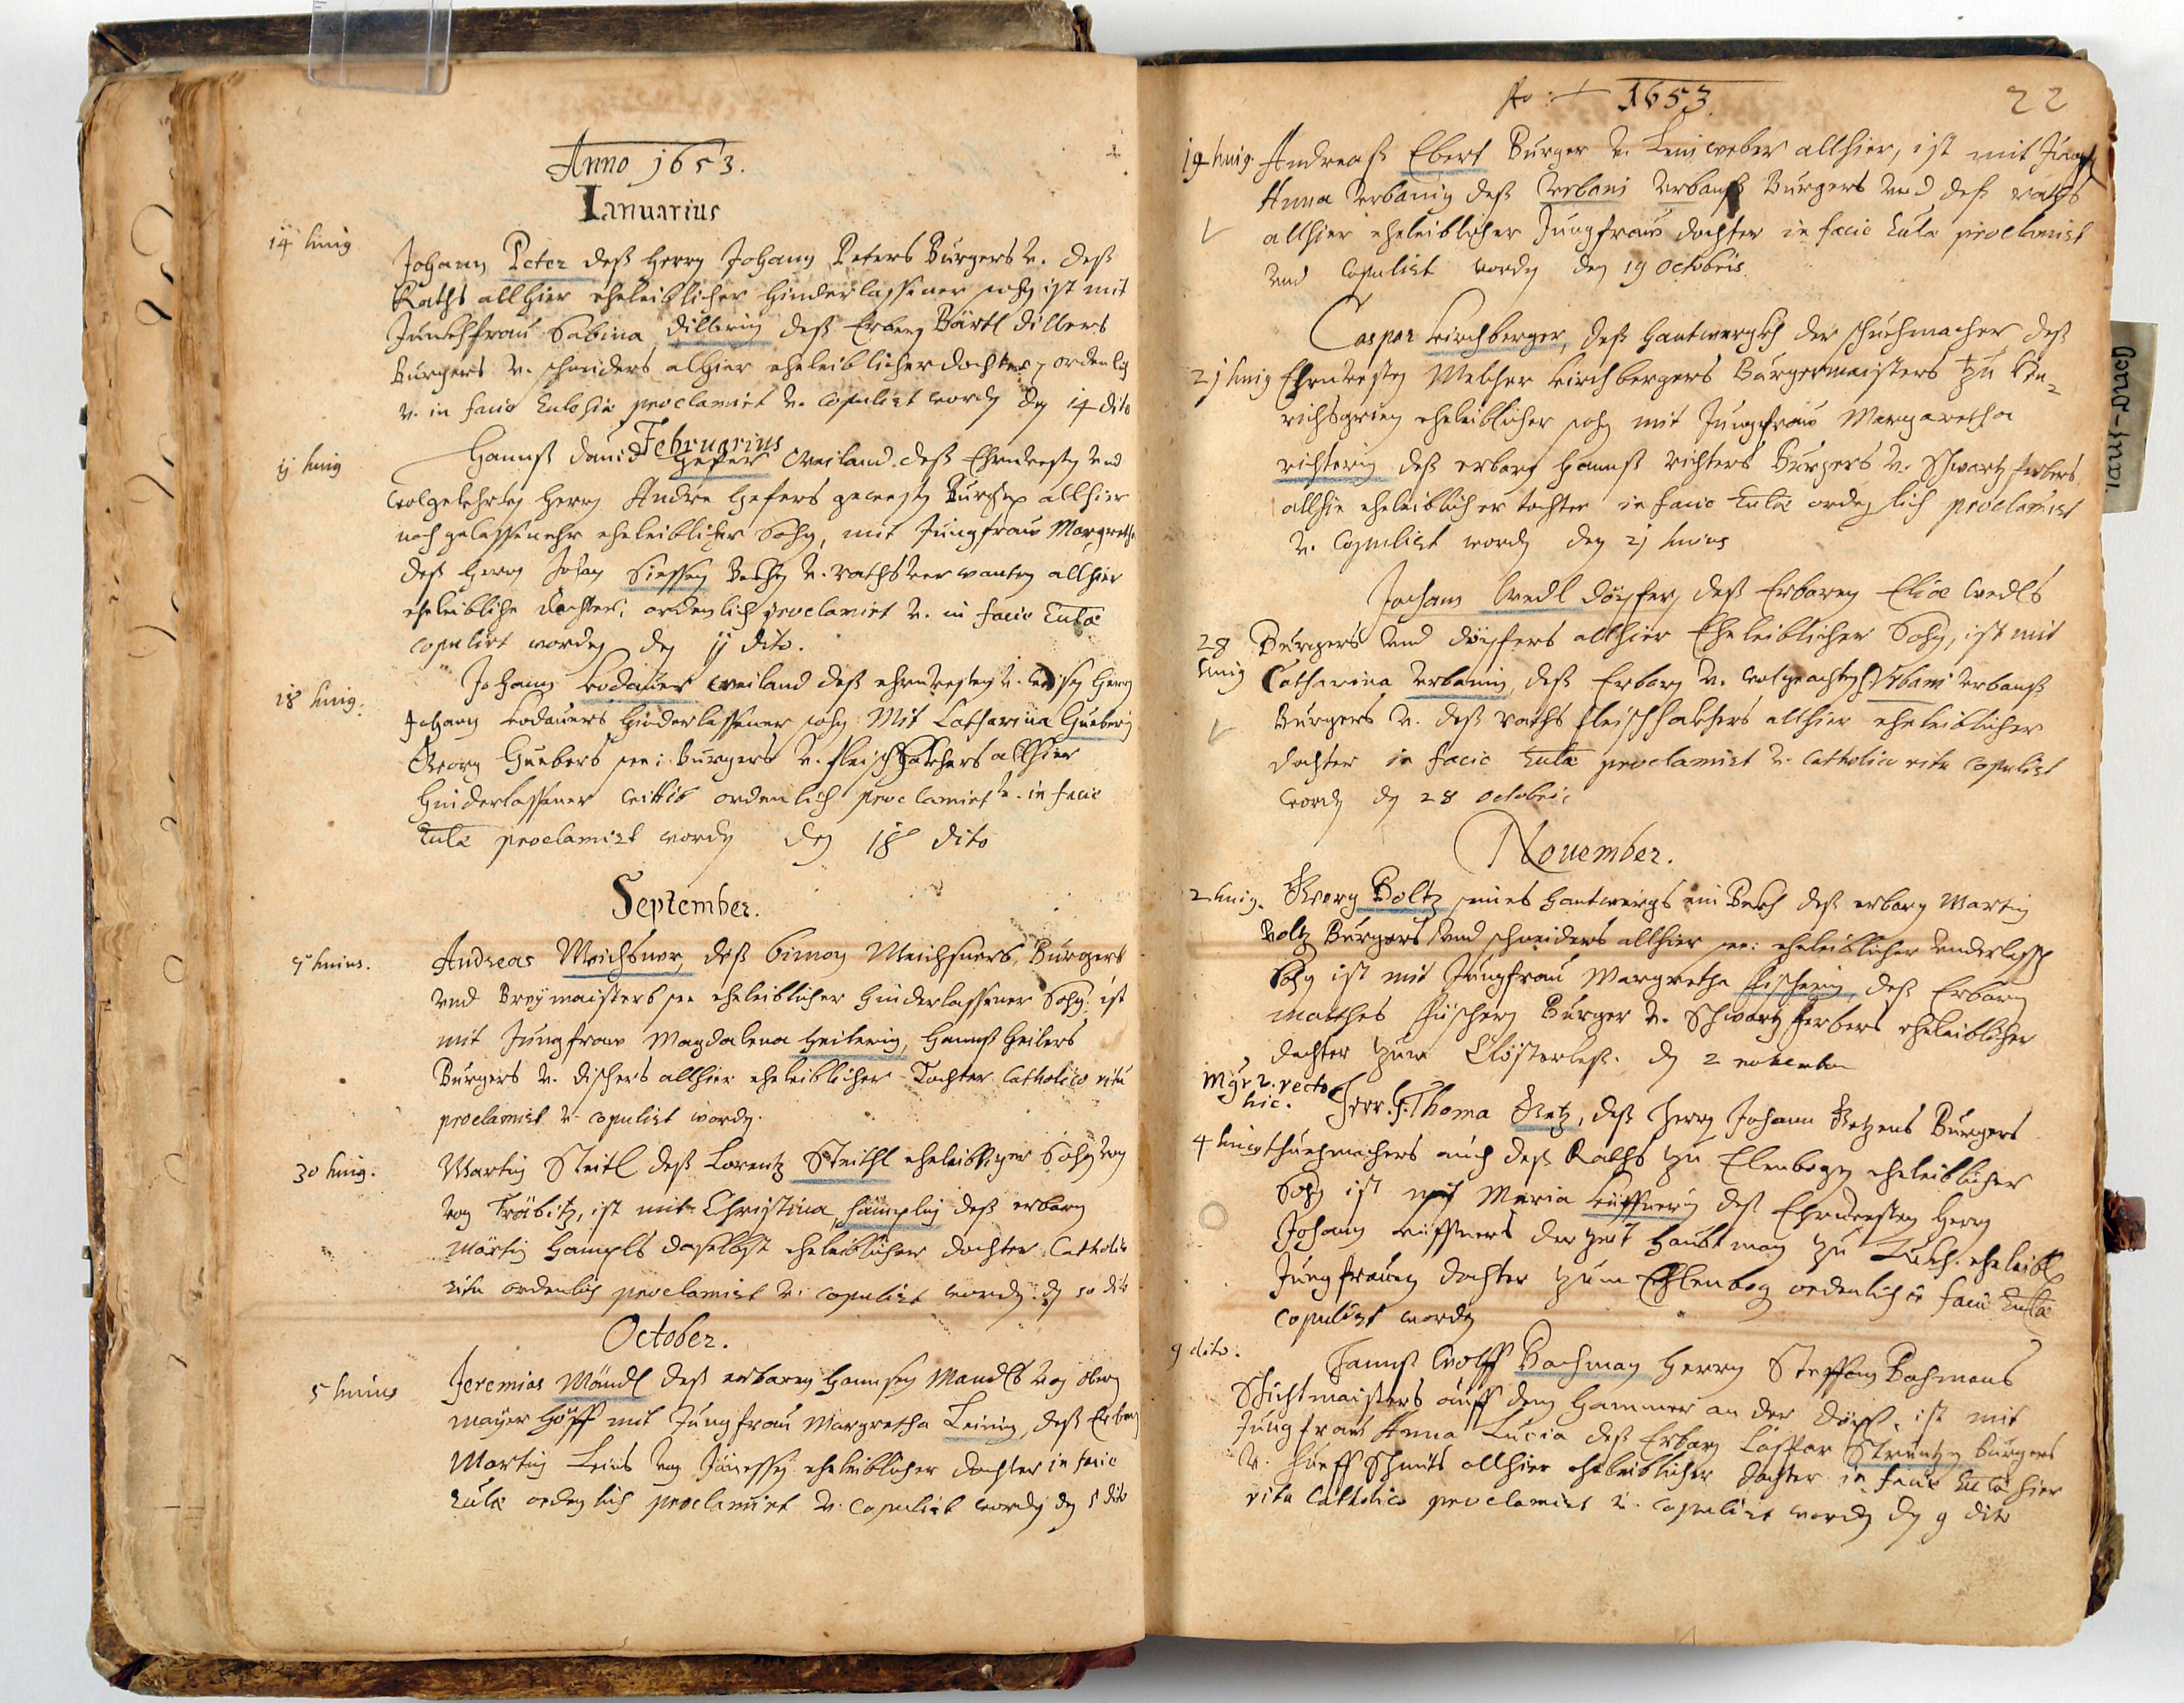 Anno 1653.
Ianuarius
14 huig
Johann Peter deß Herrn Johann Peters Burgers v. deß
Raths allhier eheleiblicher hinderlassener sohn ist mit
Junckhfrau Sabina dillerin deß Erbarn Bärtl dillers
Burgers v. schneiders alhier eheleiblicher dochter, ordenlig
v. in facie Eulesia proclamirt v. copulirt wordn den 14 dito
Februarius
11 huig
Hannß dauid Hefer weiland deß Ehrnuesten vnd
wolgelehrten Herrn Andre Hefers gewesten allhier
nach gelassenehr eheleiblicher Sohn, mit Jungfrau Margreth
deß Herrn Johan v. rathsverwanten allhier
eheleibliche dochter, ordenlich proclamirt v. in facie Eulæ
copulirt worden den 11 dito.
18 huig.
Johann Lodauer weiland deß ehrnuesten v. Herrn
Johann Lodauers hinderlassener sohn Mit Catharina Gueberin
Georg Guebers see: Burgers v. fleischhackhers allhier
hinderlassener wittib ordenlich proclamirt v. in facie
Eulæ proclamirt wordn den 18 dito
September.
9 huius.
Andreas Meichsner, deß Simon Meichsners, Burgers
vnd Breÿmaisters see eheleiblicher hinderlassener Sohn: ist
mit Jungfrau Magdalena Heilerin, Hannß Heilers
Burgers v. dischers allhier eheleiblicher Tochter Catholico ritu
proclamirt v. copulirt wordn.
30 huig.
Martin Steitl deß Lorentz Steithl eheleibliger Sohn von
von Träbitz, ist mit Christina hämplin deß erbarn
Märtin Hampls daselbst eheleiblicher dochter Catholico
ritu ordenlich proclamirt v. copulirt wordn. dn 30 dito
October.
5 huius
Jeremias Mändl deß erbaren Hannsen Mandls von obern
mayer Höff mit Jungfrau Margretha Leinin, deß Erbarn
Martin Leins von eheleiblicher dochter in facie
Eulæ ordenlich proclamirt v. copulirt wordn den 5 dito
Ao: 1653
22
19 huig.
Andreaß Ebert Burger v. Leinweber allhier, ist mit Jungf
Anna Verbanin deß Verbani Verbanß Burgers vnd deß raths
allhier eheleiblicher Jungfrau dochter in facie Eulæ proclamirt
vnd copulirt wordn den 19 octobris
Caspar Kirchberger, deß Hantwerghs der schuehmacher, deß
21 huig
Ehrnuesten Melcher Kirchbergers Bürgermaisters tzu
eheleiblicher sohn mit Jungfrau Margaretha
richterin deß erbarn Hannß richters Burgers v. Schwartz ferbers
allhie eheleiblicher tochter in facie Eulæ ordenlich proclamirt
v. copulirt wordn den 21 huius
Johann Wedl döpfer, deß Erbaren Eliæ Wedls
28
huig
Burgers vnd döpfers allhier Eheleiblicher Sohn, ist mit
Catharina Verbanin, deß Erbarn v. wolgeachten Vrbani Verbanß
Burgers v. deß raths fleischhakhers allhier eheleiblicher
dochter in facie Eulæ proclamirt v. Catholico ritu copulirt
wordn dn 28 octobris
November.
2 huig.
Georg Boltz seines Hantwergs ein Bekh deß erbarn Martin
Boltz Burgers vnd schneiders allhier see: eheleiblicher
Sohn ist mit Jungfrau Margretha fischerin, deß Erbarn
matthes fischers Burger v. Schwartz ferbers eheleiblicher
dochter zum Clösterleß. dn 2 november
Mgr v. recto
hic.
Herr Thoma Getz, deß Herrn Johann Getzens Burgers
4 huius
schuehmachers auch deß Raths zu Elenbogn eheleiblicher
Sohn ist mit Maria Küffnerin deß Ehrnuesten Herrn
Johann Küffners der zeit Haubtman zu eheleibl
Jungfrauen dochter zum Ehlenbog ordenlich in facie Eulæ
copulirt wordn
9 dito.
Hannß Wolff Bachman Herrn Steffan Bachmans
Schichtmaisters auff dem Hammer an der ist mit
Jungfrau Anna Lucia deß Erbarn Caspar Burgers
v. Hueff Schmits allhier eheleiblicher dochter in facie Eulæ hier
ritu Catholico proclamirt v. copulirt wordn dn 9 dito